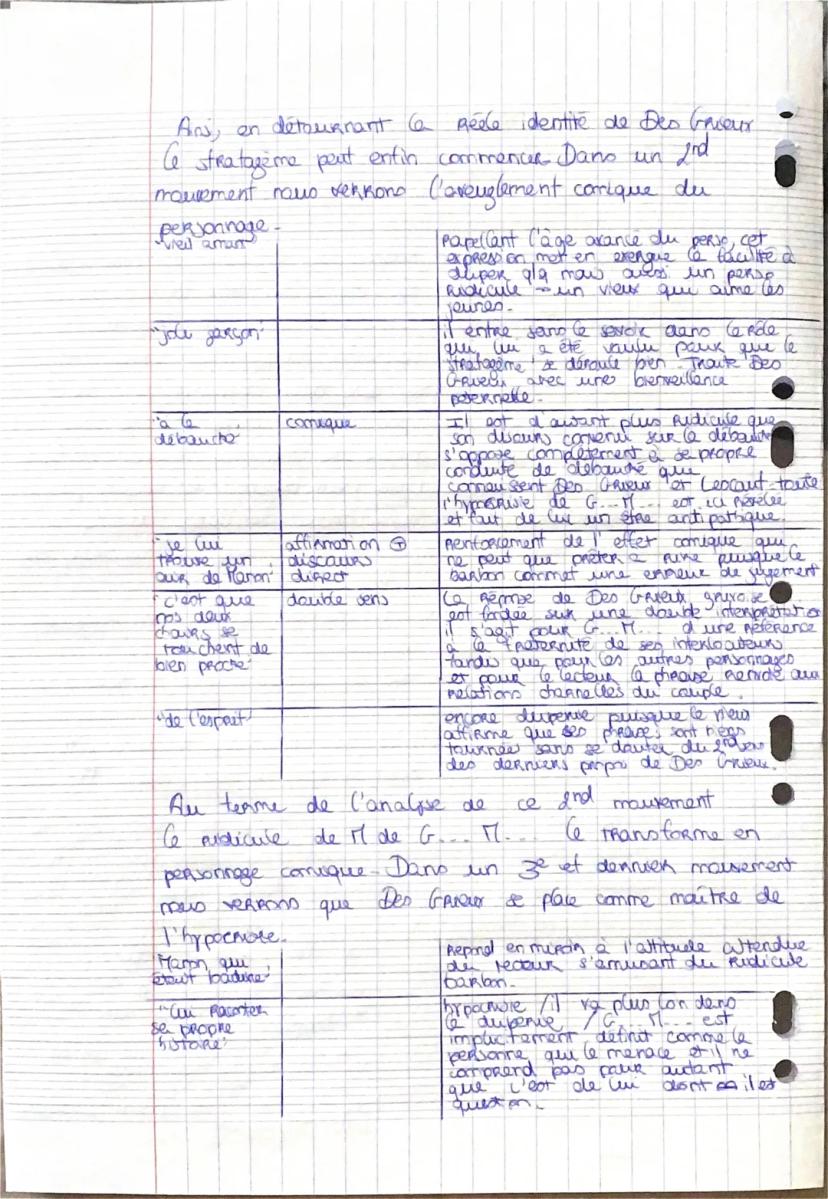 Ansi, en détournant la réele identité de Des Grieux
le stratagème peut enfin commencer. Dans un 2nd
mouvement nous verrons l'aveuglement comique du
personnage.
"vieil amant"
Rapellant l'âge avancé du perso, cet
expression met en exergue la facilité à
duper qlq mais aussi un perso
ridicule → un vieux qui aime les
jeunes.
"joli garçon"
il entre sans le savoir dans le rôle
qui lui a été voulu pour que le
stratagème se déroule bien. Traite Des
Grieux avec une bienveillance
paternelle.
"à la
débauche"
comique
Il est d'autant plus ridicule que
son discours convenu sur la débauche
s'oppose complètement à sa propre
conduite de débauché que
connaissent Des Grieux et Lescaut. toute
l'hypocrisie de G... M... est ici révélée
et fait de lui un être antipathique.
"je lui
trouve un
air de Manon"
affirmation ⊕
discours
direct
Renforcement de l'effet comique qui
ne peut que prêter à rire puisque le
barbon commet une erreur de jugement
"c'est que
nos deux
chairs se
touchent de
bien proche"
double sens
La réponse de Des Grieux grivoise
est fondée sur une double interprétation
il s'agit pour G... M... d'une référence
à la fraternité de ses interlocuteurs
tandis que pour les autres personnages
et pour le lecteur la phrase renvoie aux
relations charnelles du couple.
"de l'esprit"
encore duperie puisque le vieux
affirme que ses phrases sont bien
tournée sans se douter du 2nd sens
des derniers propos de Des Grieux.
Au terme de l'analyse de ce 2nd mouvement
le ridicule de M de G... M... le transforme en
personnage comique. Dans un 3e et dernier mouvement
nous verrons que Des Grieux se place comme maître de
l'hypocrisie.
Manon qui
était badine"
Repond en miroir à l'attitude attendue
du lecteur s'amusant du ridicule
barbon.
"lui raconter
sa propre
histoire"
hypocrisie / il va plus loin dans
la duperie / G... M... est
implicitement définit comme la
personne qui le menace et il ne
comprend pas pour autant
que c'est de lui dont il est
question.